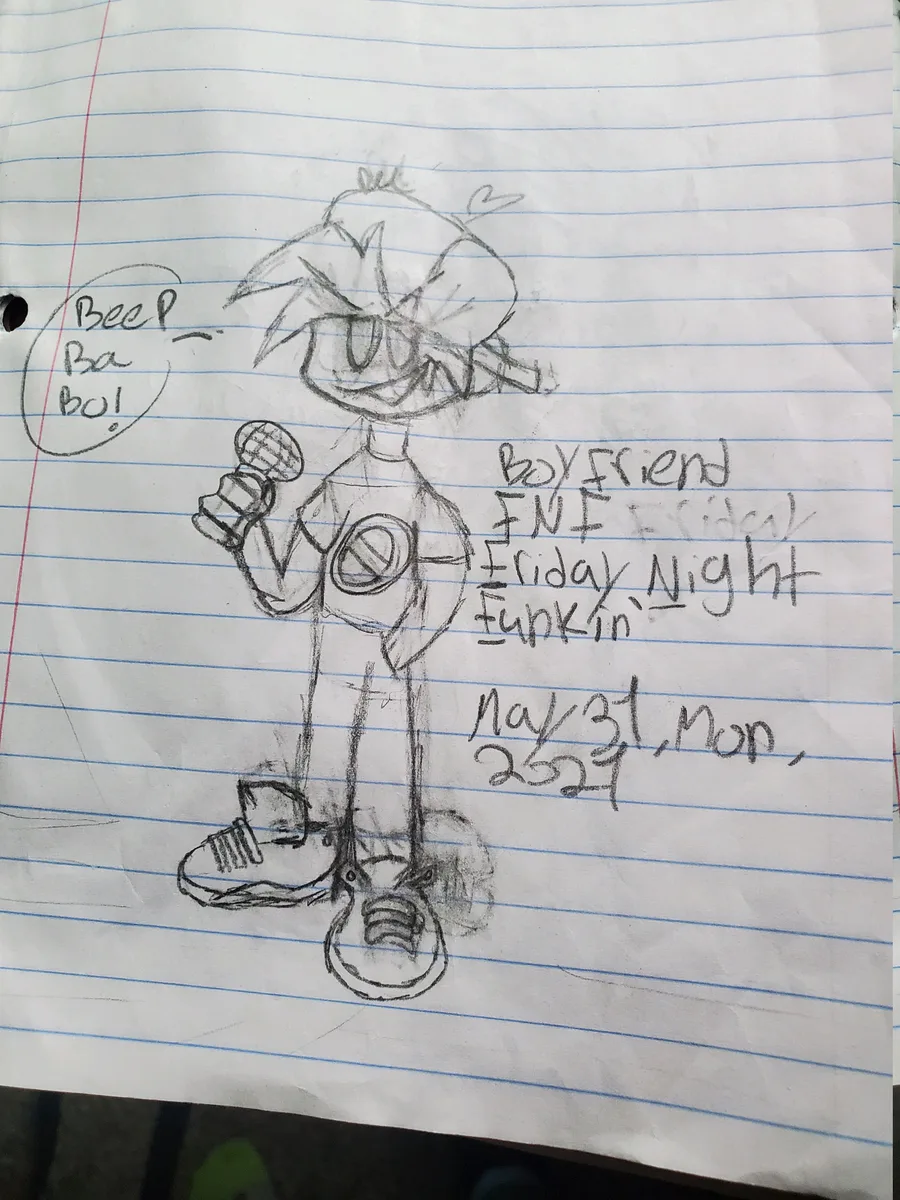 Beep
Ba
Bo!
Boyfriend
FNF Friday
Friday Night
Funkin'
May 31, Mon,
2021